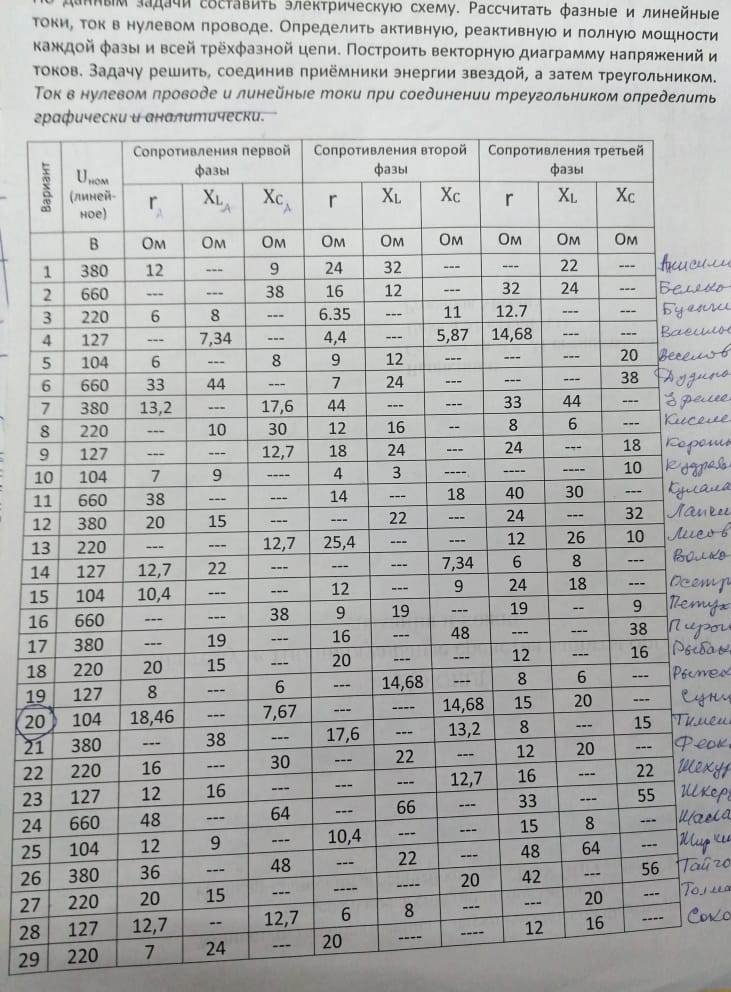 По данным задачи составить электрическую схему. Рассчитать фазные и линейные
токи, ток в нулевом проводе. Определить активную, реактивную и полную мощности
каждой фазы и всей трёхфазной цепи. Построить векторную диаграмму напряжений и
токов. Задачу решить, соединив приёмники энергии звездой, а затем треугольником.
Ток в нулевом проводе и линейные токи при соединении треугольником определить
графически и аналитически.
Вариант Uном (линейное) Сопротивления первой фазы Сопротивления второй фазы Сопротивления третьей фазы
r A XL A XC A r XL XC r XL XC
В Ом Ом Ом Ом Ом Ом Ом Ом Ом
1 380 12 --- 9 24 32 --- --- 22 ---
2 660 --- --- 38 16 12 --- 32 24 ---
3 220 6 8 --- 6.35 --- 11 12.7 --- ---
4 127 --- 7,34 --- 4,4 --- 5,87 14,68 --- ---
5 104 6 --- 8 9 12 --- --- --- 20
6 660 33 44 --- 7 24 --- --- --- 38
7 380 13,2 --- 17,6 44 --- --- 33 44 ---
8 220 --- 10 30 12 16 -- 8 6 ---
9 127 --- --- 12,7 18 24 --- 24 --- 18
10 104 7 9 ---- 4 3 ---- ---- ---- 10
11 660 38 --- --- 14 --- 18 40 30 ---
12 380 20 15 --- --- 22 --- 24 --- 32
13 220 --- --- 12,7 25,4 --- --- 12 26 10 Лисов
14 127 12,7 22 --- --- --- 7,34 6 8 --- Волко
15 104 10,4 --- --- 12 --- 9 24 18 --- Осетр
16 660 --- --- 38 9 19 --- 19 -- 9 Петух
17 380 --- 19 --- 16 --- 48 --- --- 38 Пирог
18 220 20 15 --- 20 --- --- 12 --- 16
19 127 8 --- 6 --- 14,68 --- 8 6 ---
20 104 18,46 --- 7,67 --- ---- 14,68 15 20 ---
21 380 --- 38 --- 17,6 --- 13,2 8 --- 15
22 220 16 --- 30 --- 22 --- 12 20 ---
23 127 12 16 --- --- --- 12,7 16 --- 22
24 660 48 --- 64 --- 66 --- 33 --- 55
25 104 12 9 --- 10,4 --- --- 15 8 ---
26 380 36 --- 48 --- 22 --- 48 64 ---
27 220 20 15 --- ---- ---- 20 42 --- 56 Тайго
28 127 12,7 -- 12,7 6 8 --- --- 20 --- Толма
29 220 7 24 --- 20 ---- ---- 12 16 ---- Соко